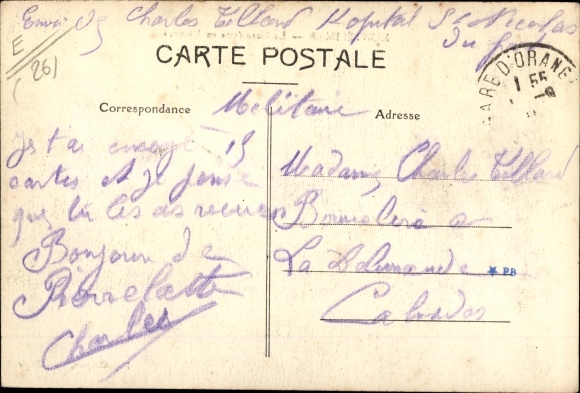 Envoi De Charles Tillard Hopital St Nicolas
du
E
(26)
CARTE POSTALE
GARE D'ORANGE
1 55
Correspondance
Adresse
Militaire
Je t'ai envoyé 15
cartes et je pense
que tu les as recues
Bonjour de
Pierrelatte
Charles
Madame Charles Tillard
a
La Délivrande
Calvados
PB